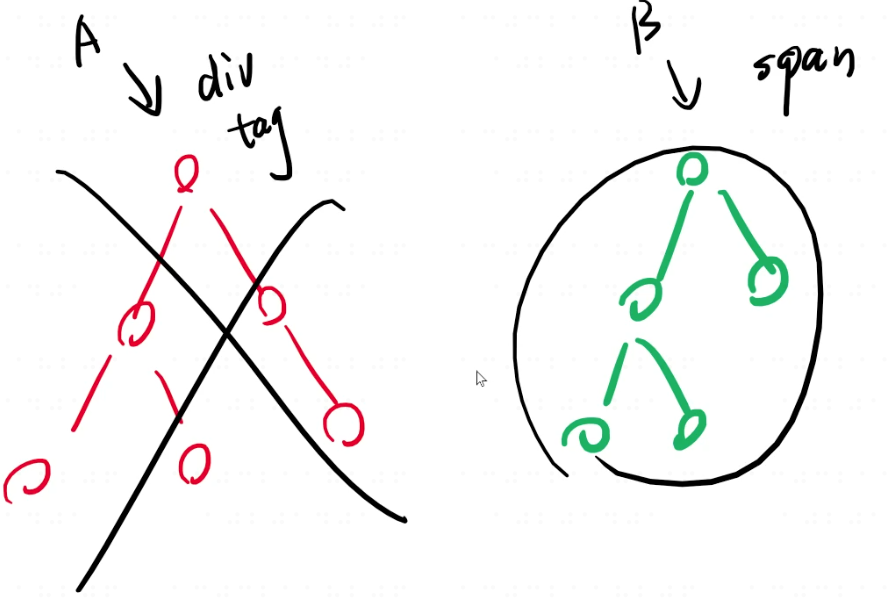 A
div
tag
B
span